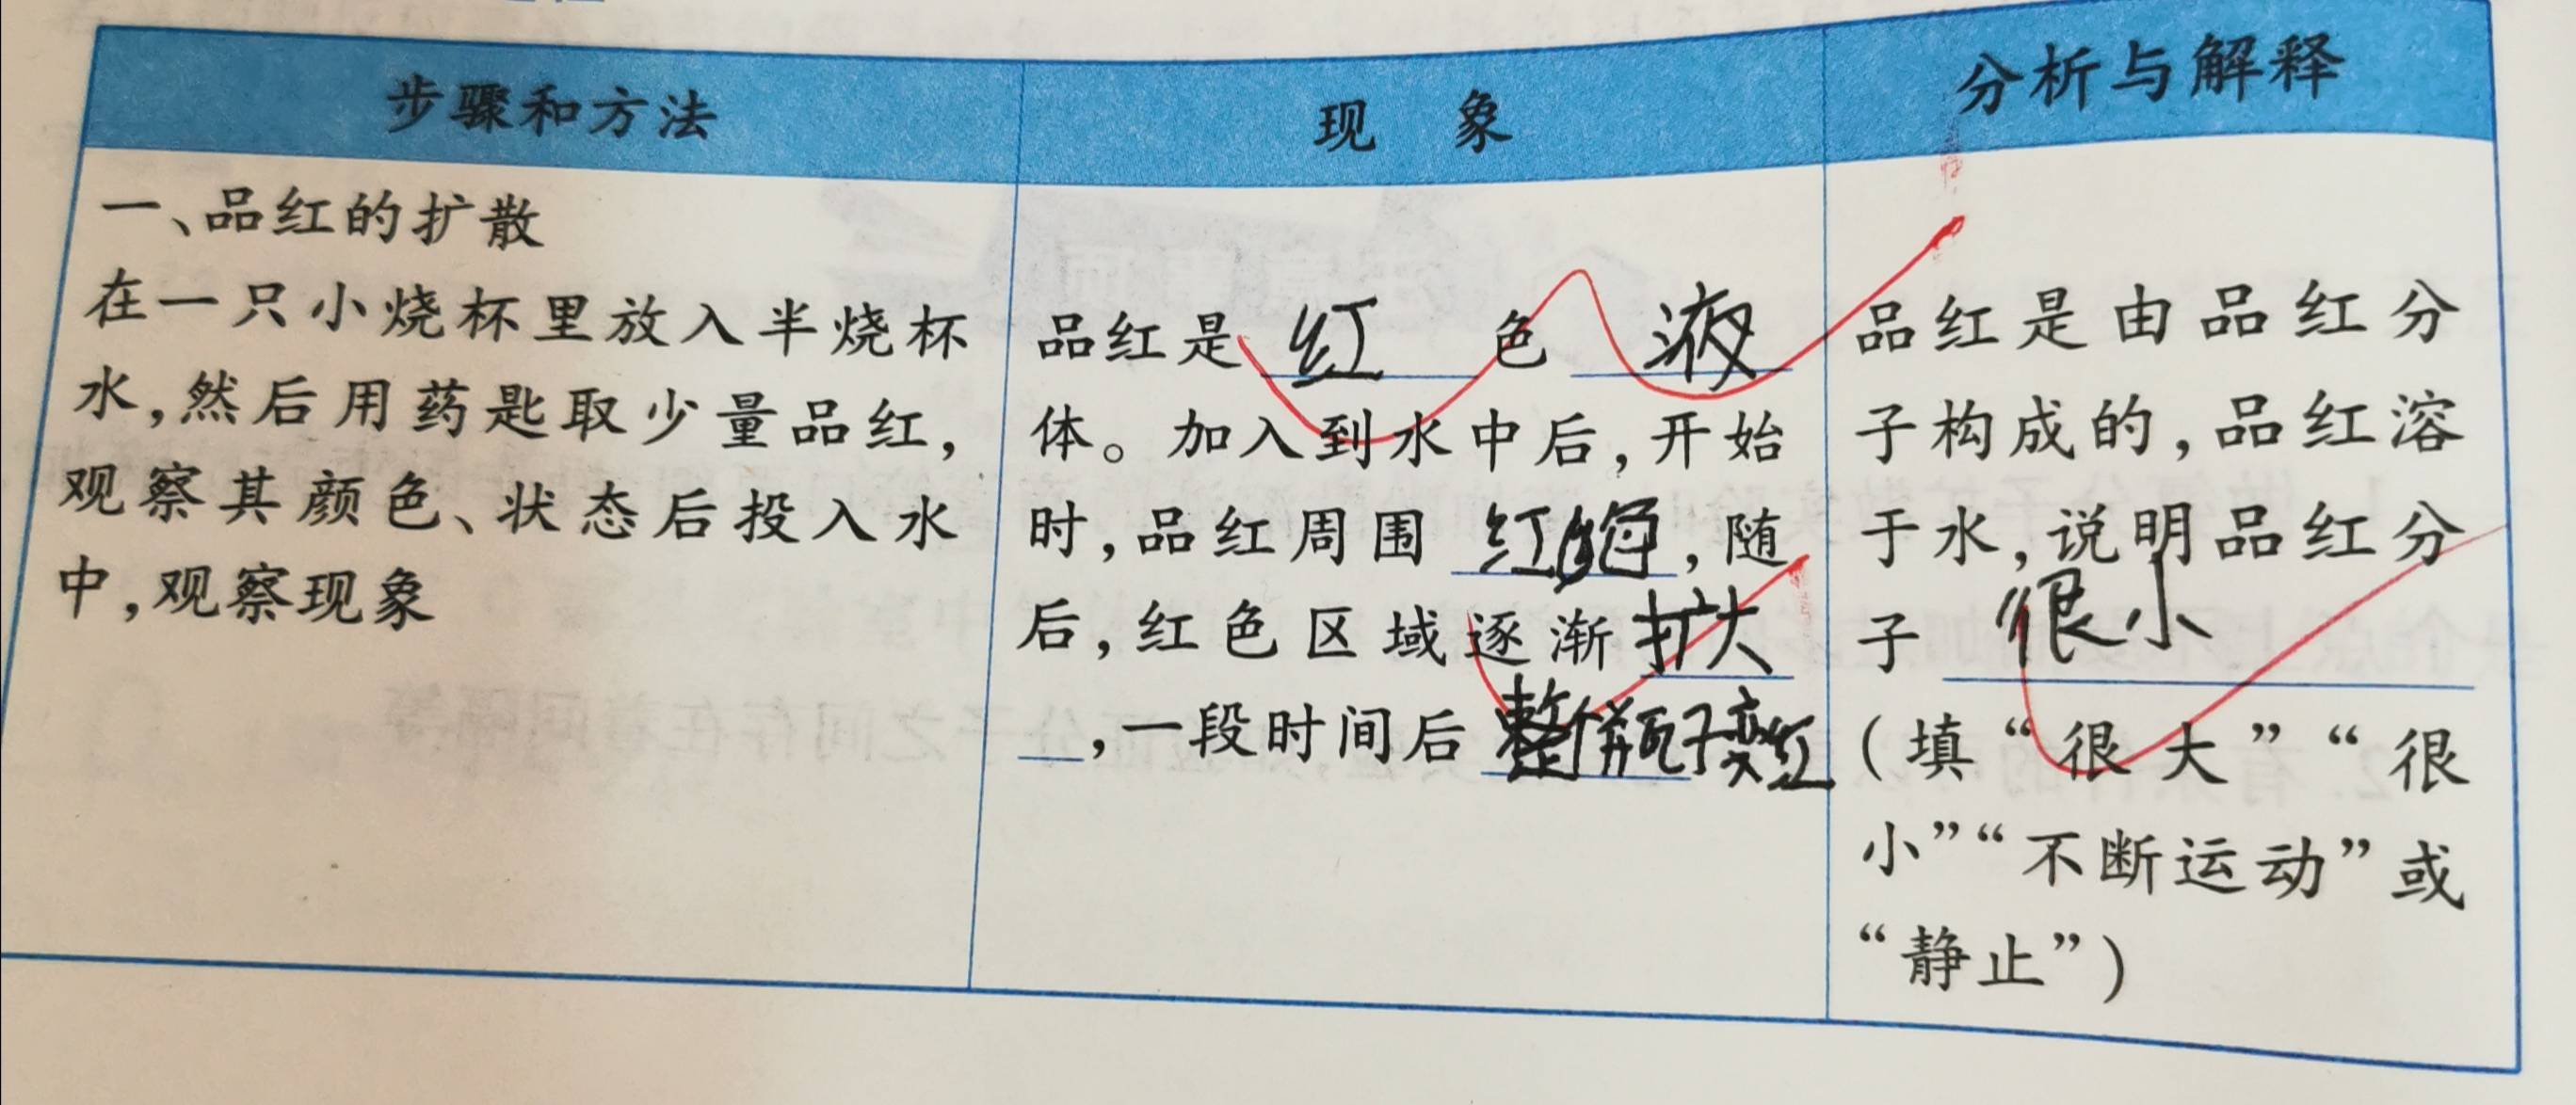 步骤和方法
现 象
分析与解释
一、品红的扩散
在一只小烧杯里放入半烧杯
水,然后用药匙取少量品红,
观察其颜色、状态后投入水
中,观察现象
品红是 红 色 液
体。加入到水中后,开始
时,品红周围 红 ,随
后,红色区域逐渐 扩大
,一段时间后 整 瓶子变红
品红是由品红分
子构成的,品红溶
于水,说明品红分
子 很小
(填“很大”“很
小”“不断运动”或
“静止”)